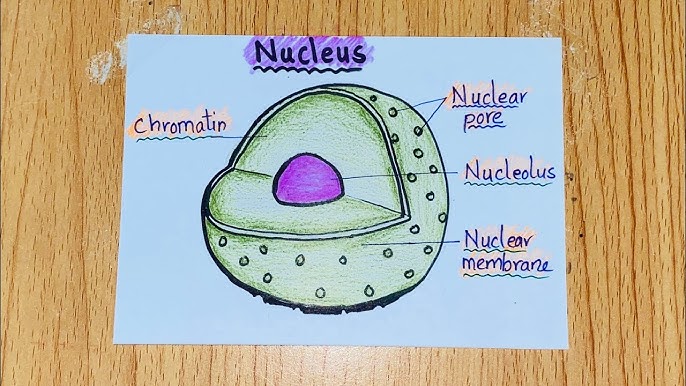 Nucleus
Chromatin
Nuclear
pore
Nucleolus
Nuclear
membrane